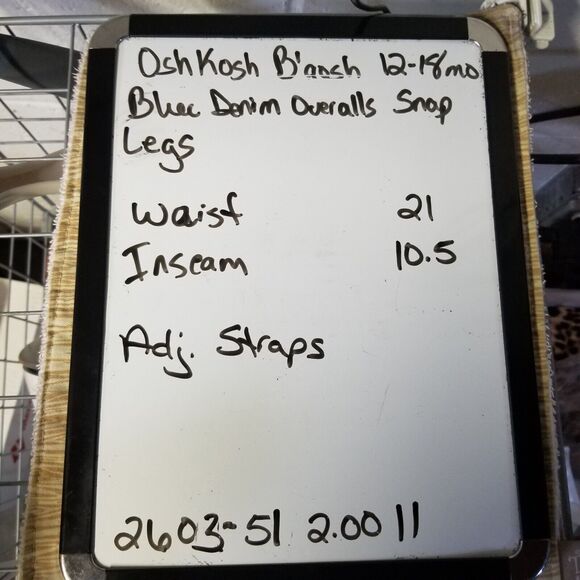 OshKosh B'gosh 12-18mo
Blue Denim Overalls Snap
Legs
Waist 21
Inseam 10.5
Adj. Straps
2603-51 2.00 11